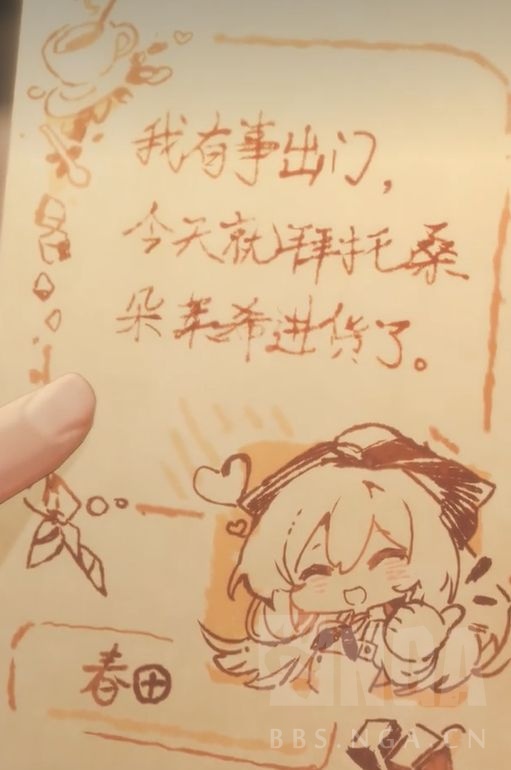 我有事出门，
今天就拜托桑
朵莱希进货了。
春田
BBS.NGA.CN